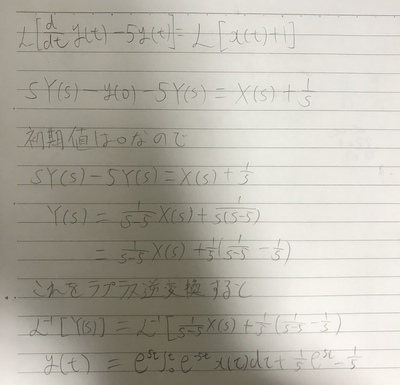 L[d/dt y(t) - 5y(t)] = L[x(t)+1]
sY(s) - y(0) - 5Y(s) = X(s) + 1/s
初期値は0なので
sY(s) - 5Y(s) = X(s) + 1/s
Y(s) = 1/(s-5) X(s) + 1/(s(s-5))
= 1/(s-5) X(s) + 1/5(1/(s-5) - 1/s)
これをラプラス逆変換すると
L⁻¹[Y(s)] = L⁻¹[1/(s-5) X(s) + 1/5(1/(s-5) - 1/s)]
y(t) = e^{5t}∫₀ᵗ e^{-5τ} x(τ)dτ + 1/5 e^{5t} - 1/5